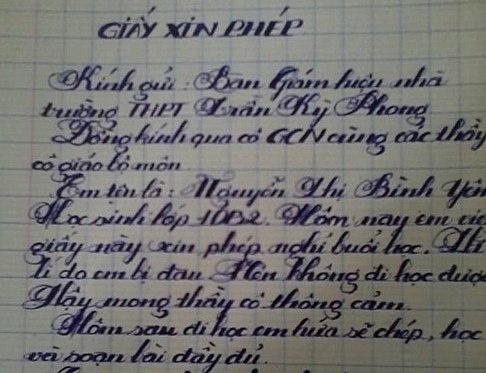 GIẤY XIN PHÉP
Kính gửi : Ban Giám hiệu nhà
trường THPT Trần Kỳ Phong
Đồng kính qua cô GCN cùng các thầy
cô giáo bộ môn
Em tên là : Nguyễn Thị Bình Yên
Học sinh lớp 10B2. Hôm nay em viết
giấy này xin phép nghỉ buổi học. Vì
lí do em bị đau. Nên không đi học được
Mây mong thầy cô thông cảm.
Hôm sau đi học em hứa sẽ chép, học
và soạn bài đầy đủ.